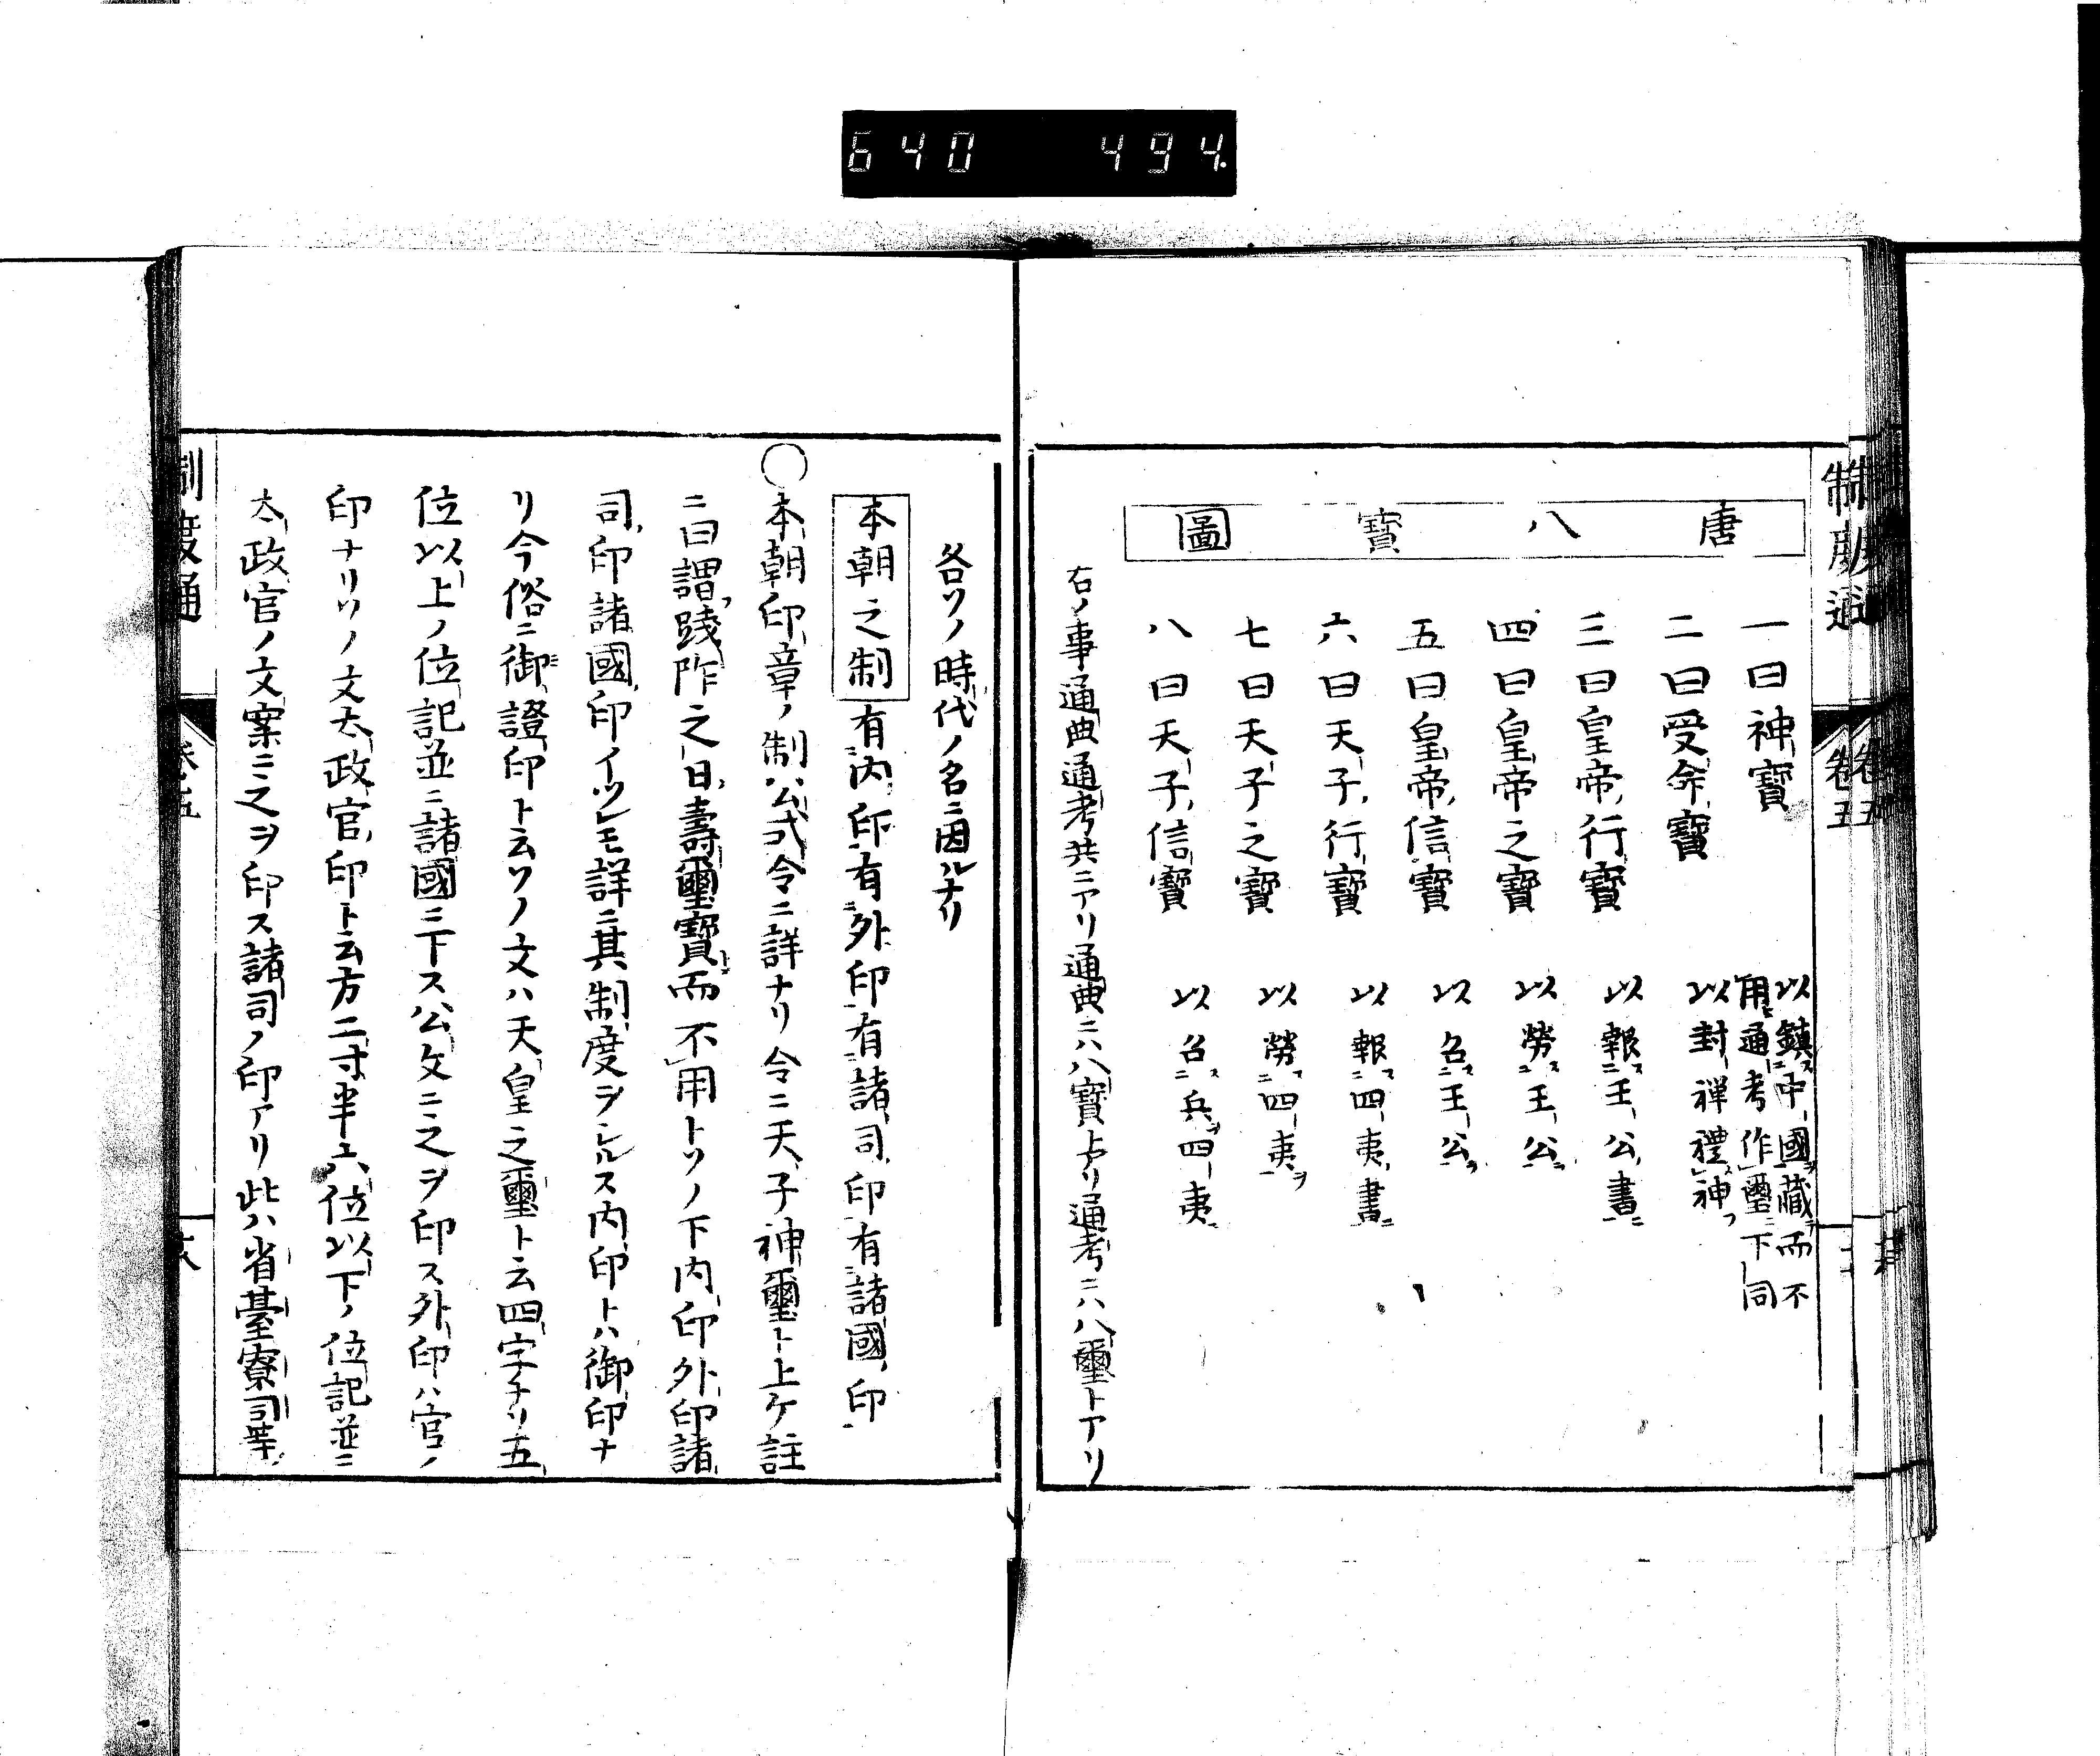 640 494
制度通 卷五
唐八寶圖
一曰神寶 以鎮中國藏而不
用通考作璽下同
二曰受命寶 以封禅禮神
三曰皇帝行寶 以報王公書
四曰皇帝之寶 以勞王公
五曰皇帝信寶 以召王公
六曰天子行寶 以報四夷書
七曰天子之寶 以勞四夷
八曰天子信寶 以召兵四夷
右ノ事通典通考共ニアリ通典ニハ八寶トアリ通考ニハ八璽トアリ
各ソノ時代ノ名ニ因ルナリ
本朝之制 有内印有外印有諸司印有諸國印
○本朝印章ノ制公式令ニ詳ナリ令ニ天子神璽ト上ケ註
ニ曰謂踐阼之日壽璽寶而不用トソノ下内印外印諸
司印諸國印イツレモ詳ニ其制度ヲシルス内印トハ御印ナ
リ今俗ニ御證印ト云ソノ文ハ天皇之璽ト云四字ナリ五
位以上ノ位記並ニ諸國ニ下ス公文ニ之ヲ印ス外印ハ官ノ
印ナリソノ文太政官印ト云方二寸半六位以下ノ位記並ニ
太政官ノ文案ニ之ヲ印ス諸司ノ印アリ此ハ省臺寮司等
制度通 卷五